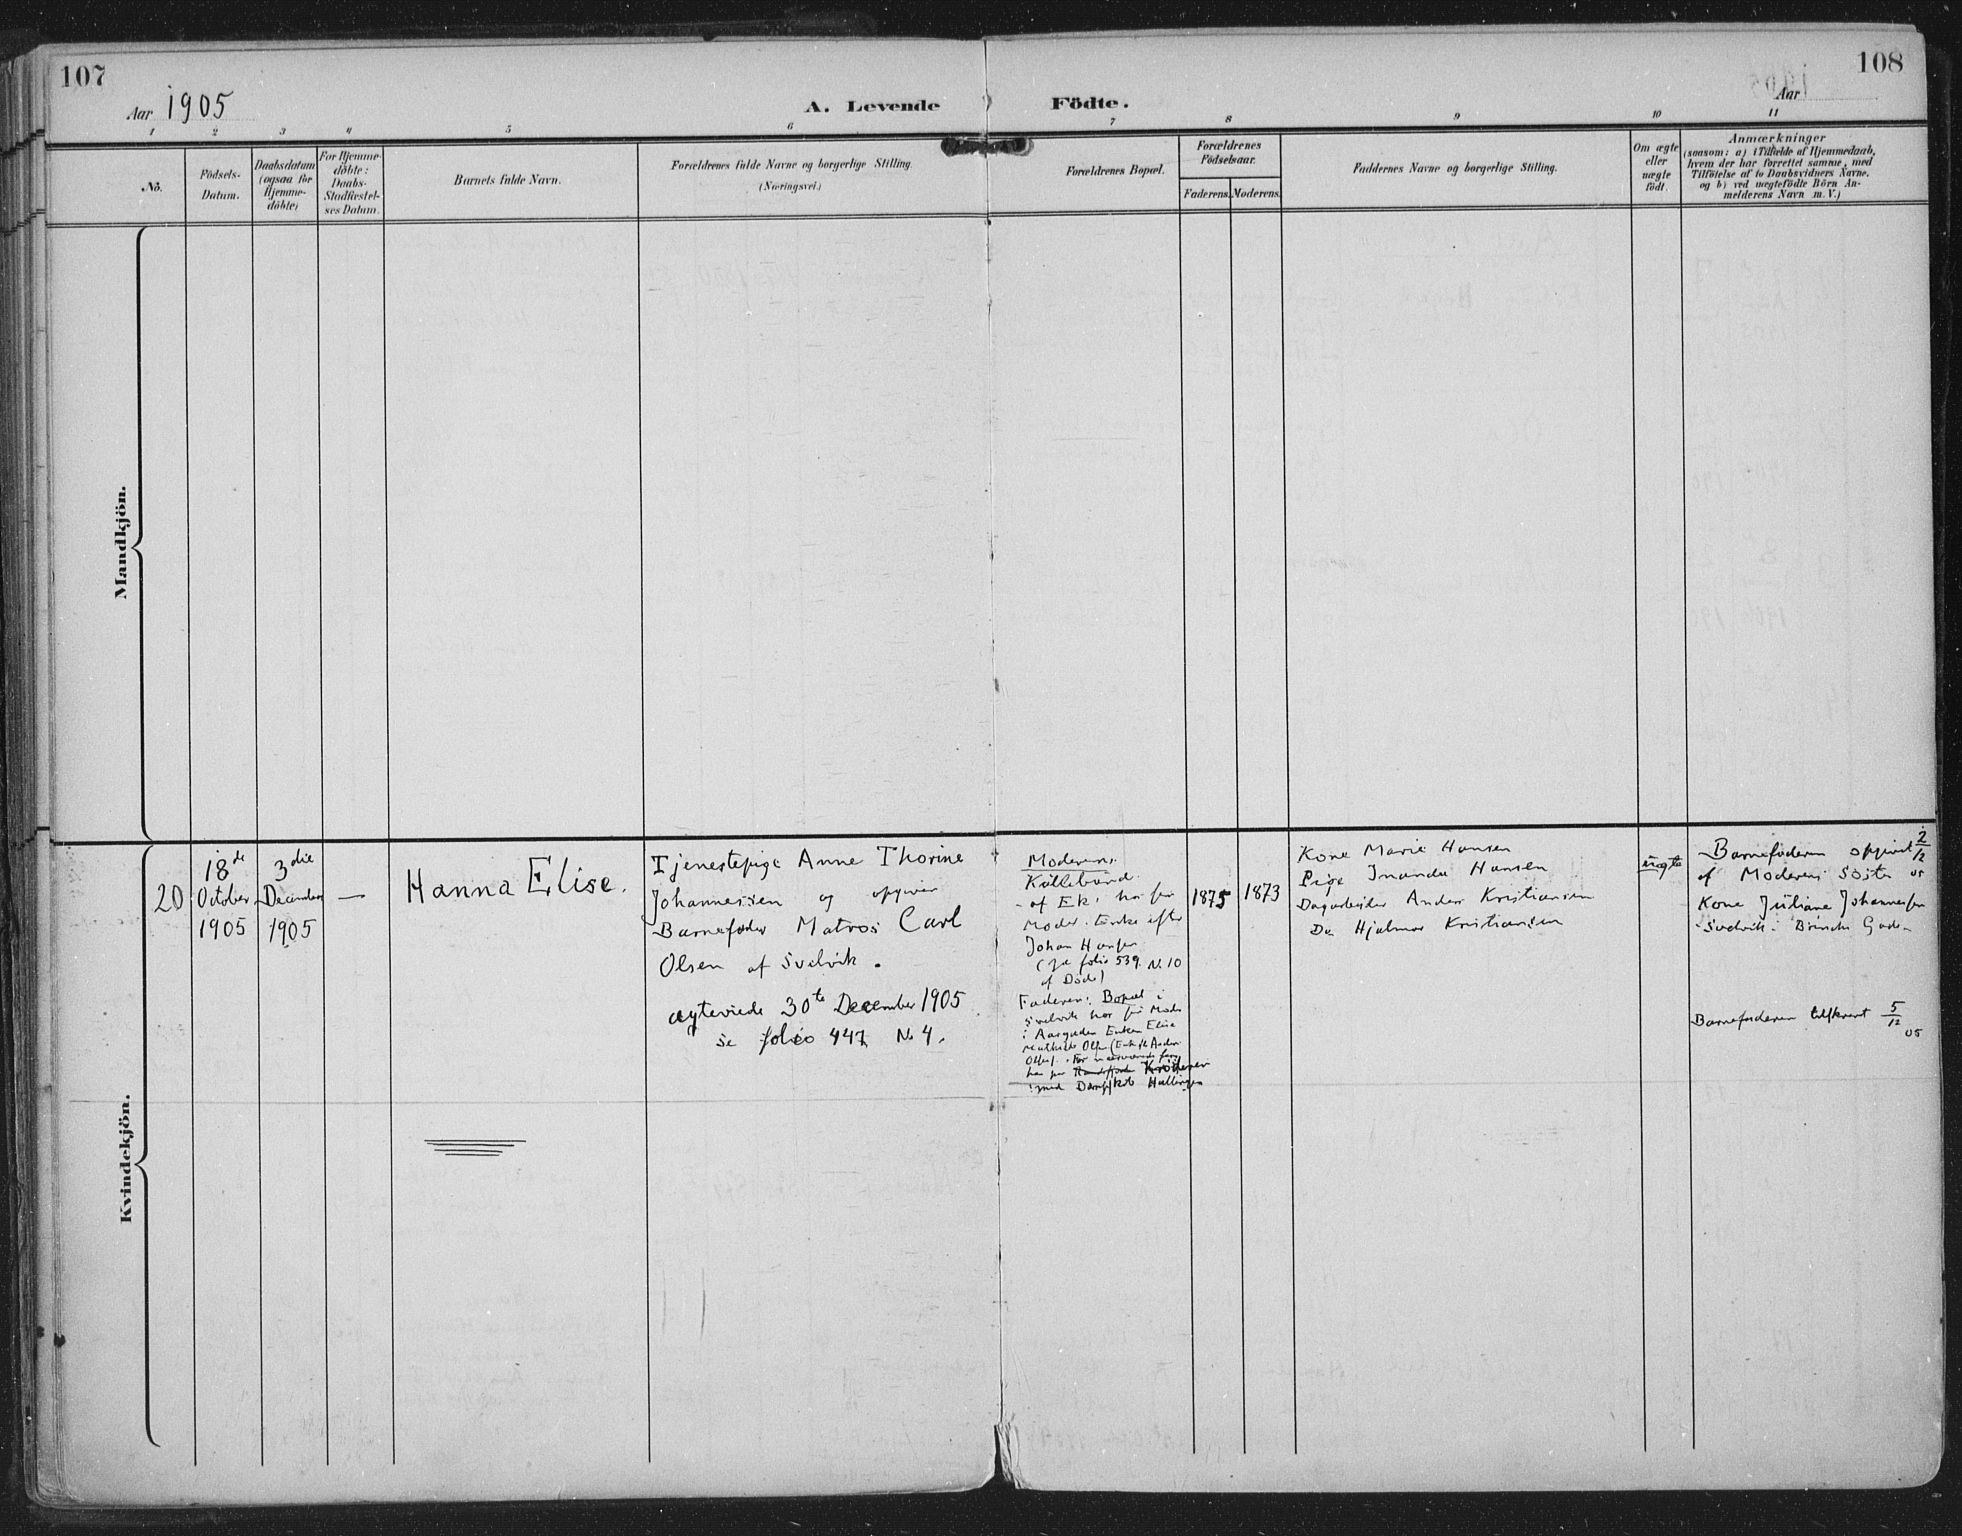 107
Aar 1905
A. Levende Födte.
108
Aar
1 2 3 4 5 6 7 8 9 10 11
No.
Födsels-
Datum.
Daabsdatum
(ogsaa for
Hjemme-
döbte)
For Hjemme-
döbte:
Daabs-
Stadfæstel-
ses Datum.
Barnets fulde Navn.
Forældrenes fulde Navne og borgerlige Stilling.
(Næringsvei.)
Forældrenes Bopæl.
Forældrenes
Födselsaar.
Faderens.
Moderens.
Faddernes Navne og borgerlige Stilling.
Om ægte
eller
uægte
födt.
Anmærkninger
(saasom: a) i Tilfælde af Hjemmedaab,
hvem der har forrettet samme, med
Tilföielse af to Daabsvidners Navne.
og b) ved uægtefödte Börn An-
melderens Navn m. V.)
Mandkjön.
Kvindekjön.
20
18de
October
1905
3die
December
1905
—
Hanna Elise.
Tjenestepige Anne Thorine
Johannessen og opgiven
Barnefader Matros Carl
Olsen af Svelvik.
ægteviede 30te December 1905
se folio 447 No 4.
Moderens:
af Ek: hos sin
Moder. Enke efter
Johan Hansen
folio 539. N. 10
af Döde)
Faderens Bopæl i
Svelvik hos sin Moder
i Aasgaden Enken Elise
med Dampskib Hallingen
1875
1873
Kone Marie Hansen
Pige Inanda Hansen
Dagarbeider Anders Kristiansen
Do Hjalmar Kristiansen
uægte
Barnefaderen opgivet 2/12 05
af Moderens Söster
Kone Juliane Johannessen
Svelvik.
Barnefaderen tilskrevet 5/12 05